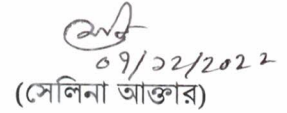 ০৭/১২/২০২২
(সেলিনা আক্তার)